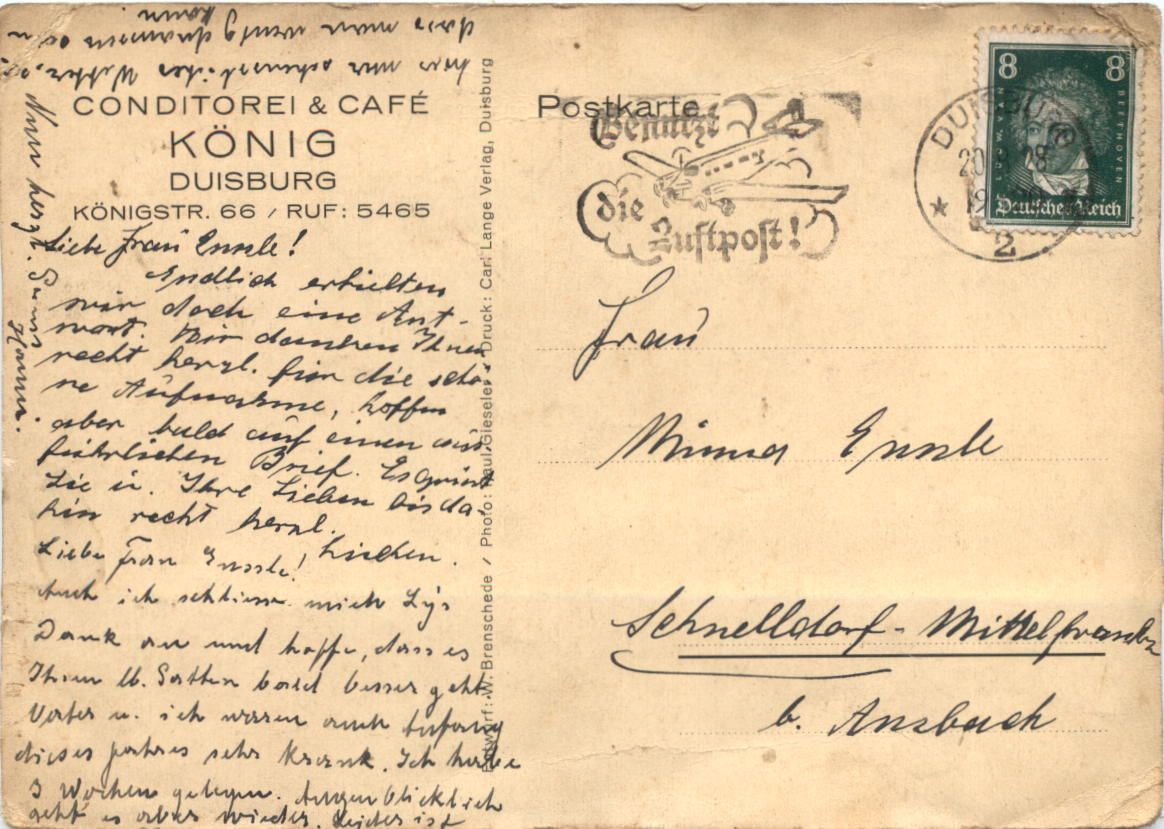 CONDITOREI & CAFÉ
KÖNIG
DUISBURG
KÖNIGSTR. 66 / RUF: 5465
Liebe Frau Enssle!
Endlich erhielten
wir doch eine Ant-
wort. Wir danken Ihnen
recht herzl. für die schö-
ne Aufnahme, hoffen
aber bald auf einen aus-
führlichen Brief. Es grüsst
Sie u. Ihre Lieben bis da-
hin recht herzl.
Lischen.
Liebe Frau Enssle!
Auch ich schliesse mich Lys
Dank an und hoffe, dass es
Ihrem lb. Gatten bald besser geht.
Vater u. ich waren auch Anfang
dieses Jahres sehr krank. Ich habe
3 Wochen gelegen. Augenblicklich
geht es aber wieder. Leider ist
hier nur scheussliches Wetter, so
dass man wenig draussen sein
kann
Nun herzl. Gruss
Hanni.
Entwurf: W. Brenschede / Photo: Paul Gieseler / Druck: Carl Lange Verlag, Duisburg
Postkarte
Benutzt
die
Luftpost!
DUISBURG
20.8.28
19
2
8 8
LUDW. VAN
BEETHOVEN
Deutsches Reich
Frau
Minna Enssle
Schnelldorf - Mittelfranken
b. Ansbach